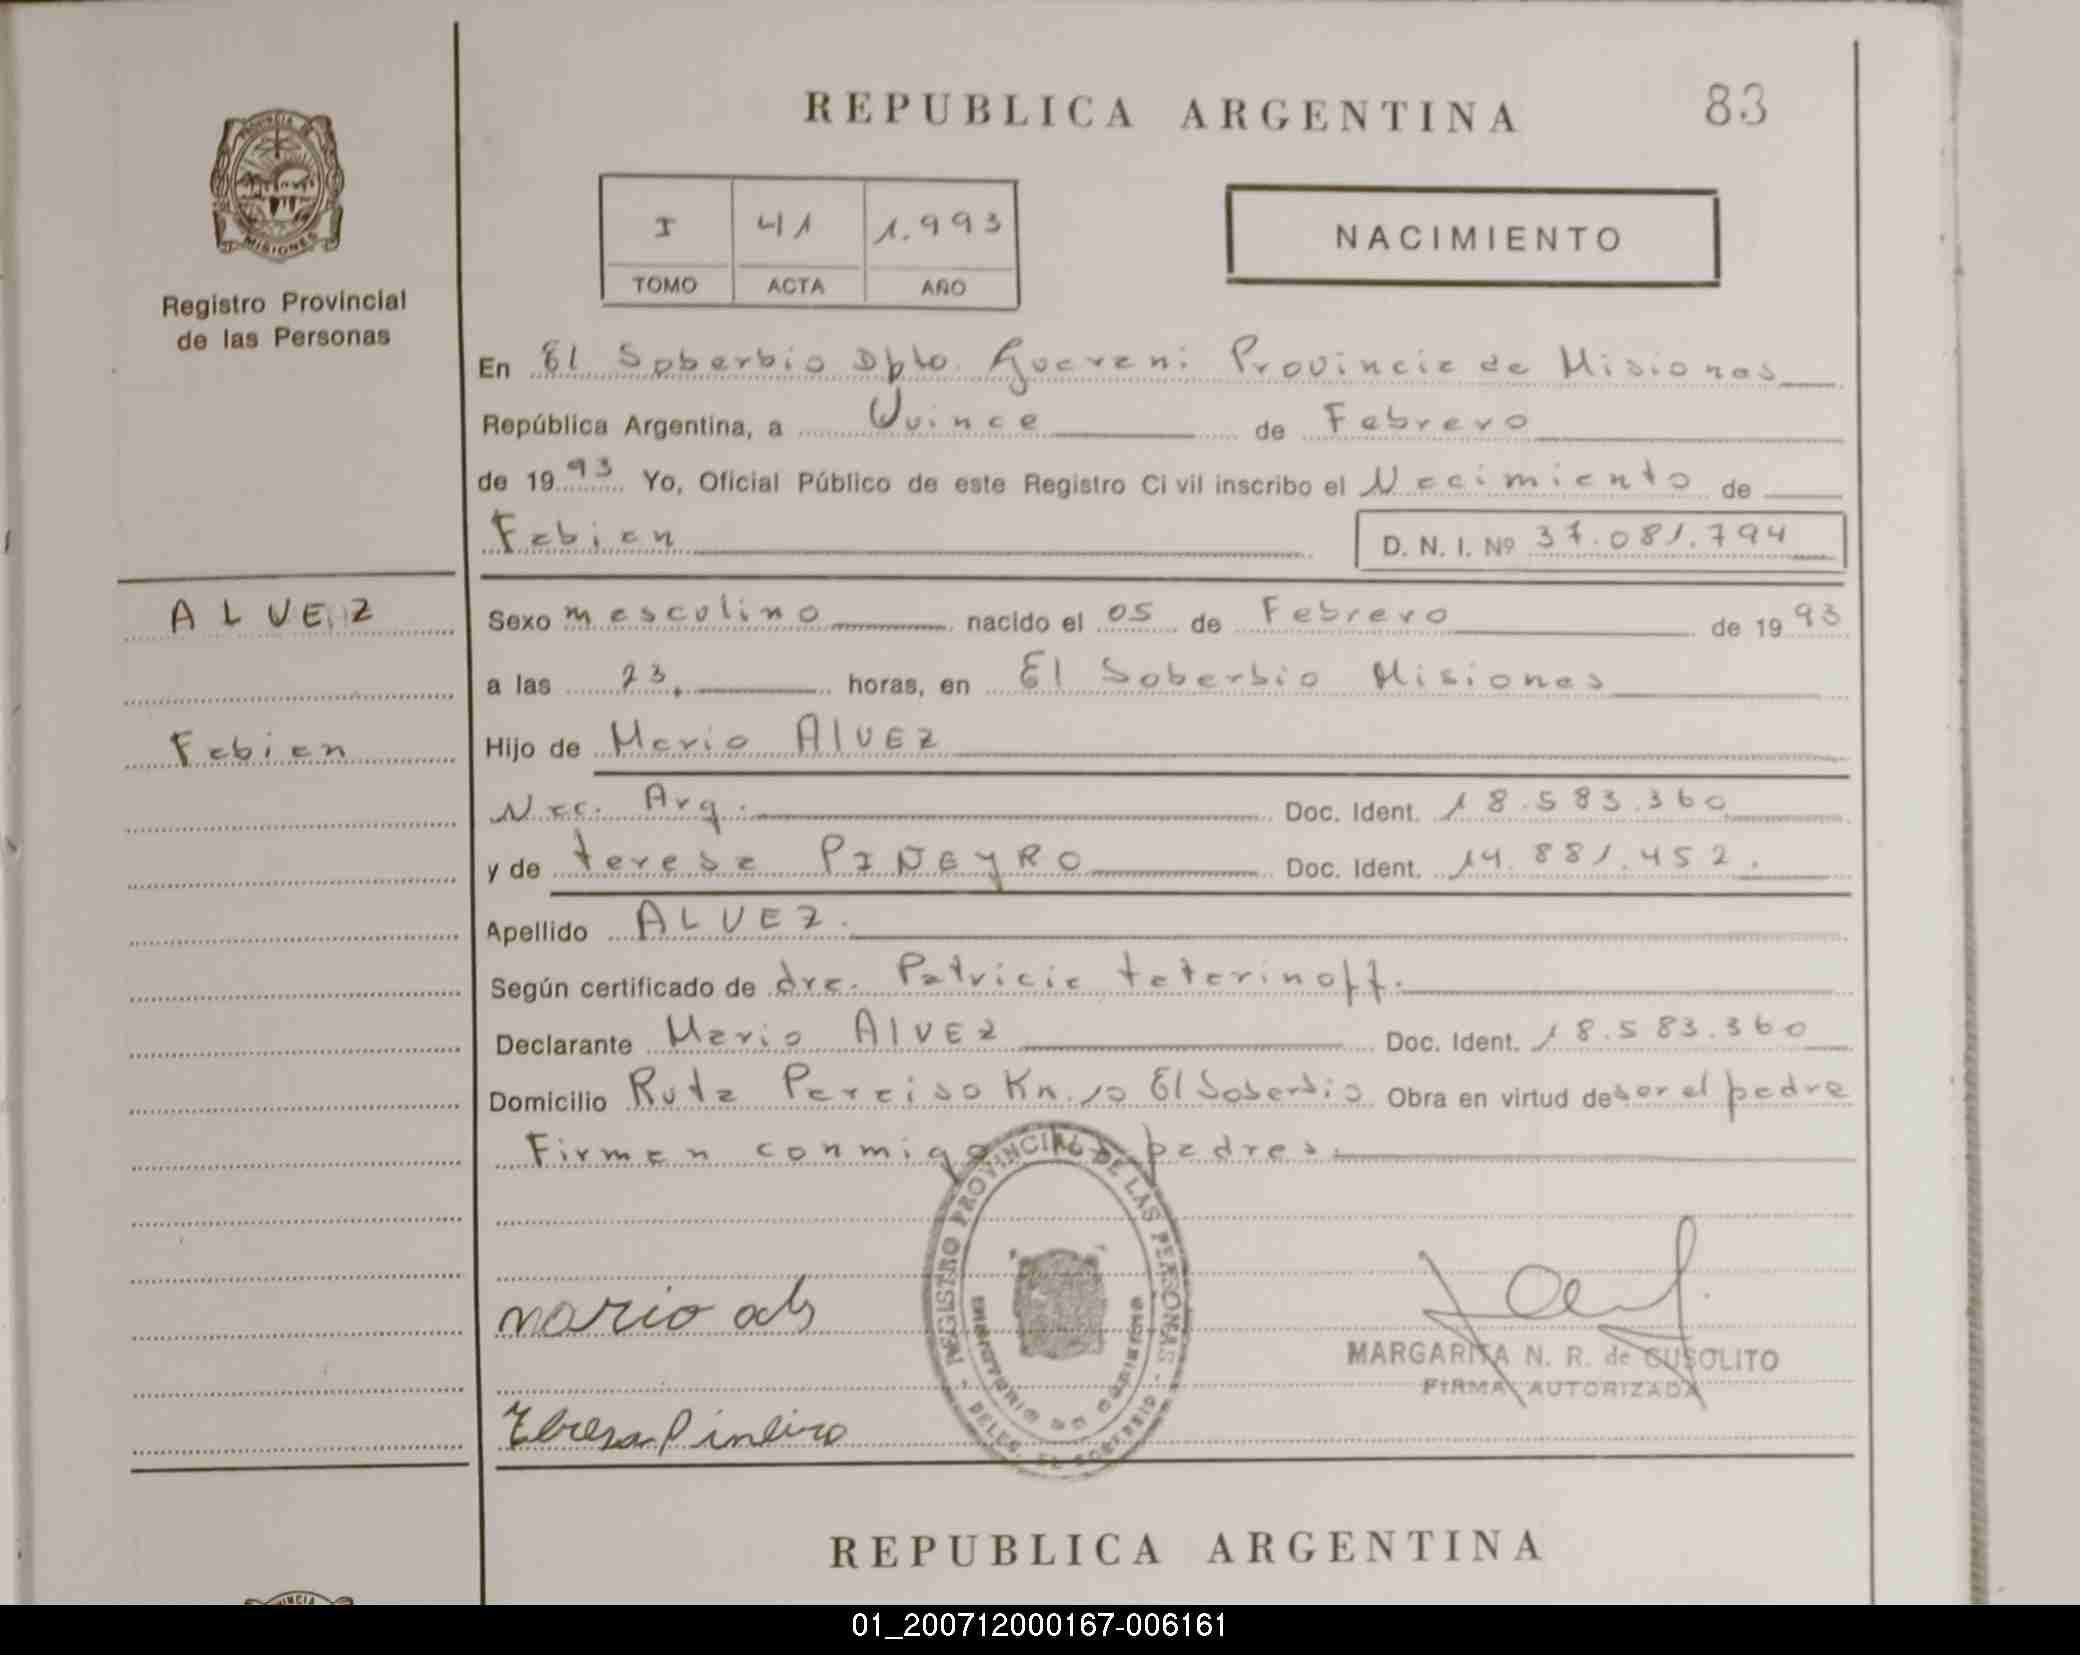 REPUBLICA ARGENTINA
83
PROVINCIA DE
MISIONES
Registro Provincial
de las Personas
I 41 1.993
TOMO ACTA AÑO
NACIMIENTO
En El Soberbio Dpto. Guarani Provincia de Misiones
República Argentina, a Quince de Febrero
de 1993 Yo, Oficial Público de este Registro Civil inscribo el Nacimiento de
Fabian D. N. I. Nº 37.081.794
ALVEZ
Fabian
Sexo masculino nacido el 05 de Febrero de 1993
a las 23. horas, en El Soberbio Misiones
Hijo de Mario AlVEZ
Nac. Arg. Doc. Ident. 18.583.360
y de teresa PINEyRO Doc. Ident. 14.881.452.
Apellido ALVEZ.
Según certificado de dra. Patricia teterinoff.
Declarante Mario AlVEZ Doc. Ident. 18.583.360
Domicilio Ruta Paraiso Km. 10 El Soberbio Obra en virtud de ser el padre
Firman conmigo los padres.
REGISTRO PROVINCIAL DE LAS PERSONAS
DELEG. EL SOBERBIO
mario
MARGARITA N. R. de CUSOLITO
FIRMA AUTORIZADA
Teresa Pineiro
REPUBLICA ARGENTINA
01_200712000167-006161